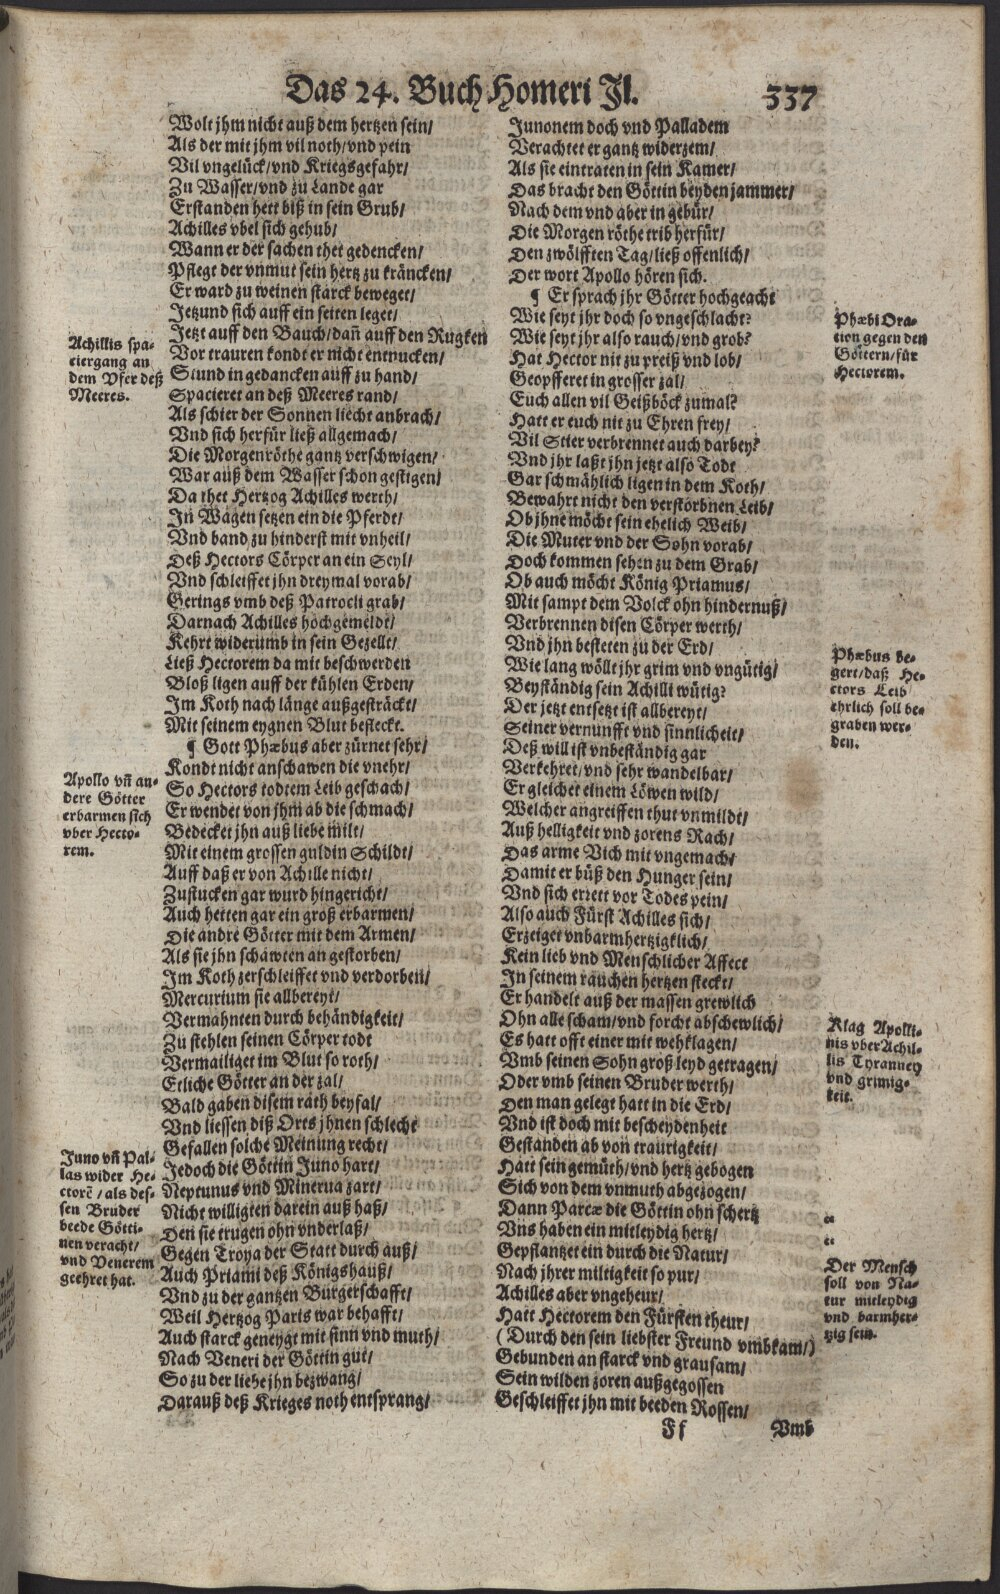 Das 24. Buch Homeri Il.
337
Wolt jhm nicht auß dem hertzen sein/
Als der mit jhm vil noth/vnd pein
Vil vngelück/vnd Kriegsgefahr/
Zu Wasser/vnd zu Lande gar
Erstanden hett biß in sein Grub/
Achilles vbel sich gehub/
Wann er der sachen thet gedencken/
Pflegt der vnmut sein hertz zu kräncken/
Er ward zu weinen starck beweget/
Jetzund sich auff ein seiten leget/
Jetzt auff den Bauch/dañ auff den Rugken
Vor trauren kondt er nicht entnucken/
Stund in gedancken auff zu hand/
Spacieret an deß Meeres rand/
Als schier der Sonnen liecht anbrach/
Vnd sich herfür ließ allgemach/
Die Morgenröthe gantz verschwigen/
War auß dem Wasser schon gestigen/
Da thet Hertzog Achilles werth/
In Wagen setzen ein die Pferdt/
Vnd band zu hinderst mit vnheil/
Deß Hectors Cörper an ein Seyl/
Vnd schleiffet jhn dreymal vorab/
Gerings vmb deß Patrocli grab/
Darnach Achilles hochgemeldt/
Kehrt widerumb in sein Gezellt/
Ließ Hectorem da mit beschwerden
Bloß ligen auff der kühlen Erden/
Im Koth nach länge außgesträckt/
Mit seinem eygnen Blut befleckt.
¶ Gott Phæbus aber zürnet sehr/
Kondt nicht anschawen die vnehr/
So Hectors todtem Leib geschach/
Er wendet von jhm ab die schmach/
Bedecket jhn auß liebe milt/
Mit einem grossen guldin Schildt/
Auff daß er von Achille nicht/
Zustucken gar wurd hingericht/
Auch hetten gar ein groß erbarmen/
Die andre Götter mit dem Armen/
Als sie jhn schawten an gestorben/
Im Koth zerschleiffet vnd verdorben/
Mercurium sie allbereyt/
Vermahnten durch behändigkeit/
Zu stehlen seinen Cörper todt
Vermailiget im Blut so roth/
Etliche Götter an der zal/
Bald gaben disem rath beyfal/
Vnd liessen diß Orts jhnen schlecht
Gefallen solche Meinung recht/
Jedoch die Göttin Juno hart/
Neptunus vnd Minerua zart/
Nicht willigten darein auß haß/
Den sie trugen ohn vnderlaß/
Gegen Troya der Statt durch auß/
Auch Priami deß Königshauß/
Vnd zu der gantzen Burgerschafft/
Weil Hertzog Paris war behafft/
Auch starck geneygt mit sinn vnd muth/
Nach Veneri der Göttin gut/
So zu der liebe jhn bezwang/
Darauß deß Krieges noth entsprang/
Achillis spa-
ciergang an
dem Vfer deß
Meeres.
Apollo vñ an-
dere Götter
erbarmen sich
vber Hecto-
rem.
Juno vñ Pal-
las wider He-
ctorē / als des-
sen Bruder
beede Götti-
nen veracht/
vnd Venerem
geehret hat.
Junonem doch vnd Palladem
Verachtet er gantz widerzem/
Als sie eintraten in sein Kamer/
Das bracht den Göttin beyden jammer/
Nach dem vnd aber in gebür/
Die Morgen röthe trib herfür/
Den zwölfften Tag/ließ offenlich/
Der wort Apollo hören sich.
¶ Er sprach jhr Götter hochgeacht
Wie seyt jhr doch so vngeschlacht?
Wie seyt jhr also rauch/vnd grob?
Hat Hector nit zu preiß vnd lob/
Geopfferet in grosser zal/
Euch allen vil Geißböck zumal?
Hatt er euch nit zu Ehren frey/
Vil Stier verbrennet auch darbey?
Vnd jhr laßt jhn jetzt also Todt
Gar schmählich ligen in dem Koth/
Bewahrt nicht den verstorbnen Leib/
Ob jhne möcht sein ehelich Weib/
Die Muter vnd der Sohn vorab/
Doch kommen sehen zu dem Grab/
Ob auch möcht König Priamus/
Mit sampt dem Volck ohn hindernuß/
Verbrennen disen Cörper werth/
Vnd jhn besteten zu der Erd/
Wie lang wöllt jhr grim vnd vngütig/
Beyständig sein Achilli wütig?
Der jetzt entsetzt ist allbereyt/
Seiner vernunfft vnd sinnlicheit/
Deß will ist vnbeständig gar
Verkehret/vnd sehr wandelbar/
Er gleichet einem Löwen wild/
Welcher angreiffen thut vnmildt/
Auß helligkeit vnd zorens Rach/
Das arme Vich mit vngemach/
Damit er büß den Hunger sein/
Vnd sich errett vor Todes pein/
Also auch Fürst Achilles sich/
Erzeiget vnbarmhertzigklich/
Kein lieb vnd Menschlicher Affect
In seinem rauchen hertzen steckt/
Er handelt auß der massen grewlich
Ohn alle scham/vnd forcht abschewlich/
Es hatt offt einer mit wehklagen/
Vmb seinen Sohn groß leyd getragen/
Oder vmb seinen Bruder werth/
Den man gelegt hatt in die Erd/
Vnd ist doch mit bescheydenheit
Gestanden ab von traurigkeit/
Hatt sein gemüth/vnd hertz gebogen
Sich von dem vnmuth abgezogen/
Dann Parcæ die Göttin ohn schertz
Vns haben ein mitleydig hertz/
Gepflantzet ein durch die Natur/
Nach jhrer miltigkeit so pur/
Achilles aber vngeheur/
Hatt Hectorem den Fürsten theur/
(Durch den sein liebster Freund vmbkam/)
Gebunden an starck vnd grausam/
Sein wilden zoren außgegossen
Geschleiffet jhn mit beeden Rossen/
Phæbi Ora-
tion gegen den
Göttern/für
Hectorem.
Phæbus be-
gert/daß He-
ctors Leib
ehrlich soll be-
graben wer-
den.
Klag Apolli-
nis vber Achil-
lis Tyranney
vnd grimig-
keit.
“
“
Der Mensch
soll von Na-
tur mitleydig
vnd barmher-
tzig sein.
Ff
Vmb